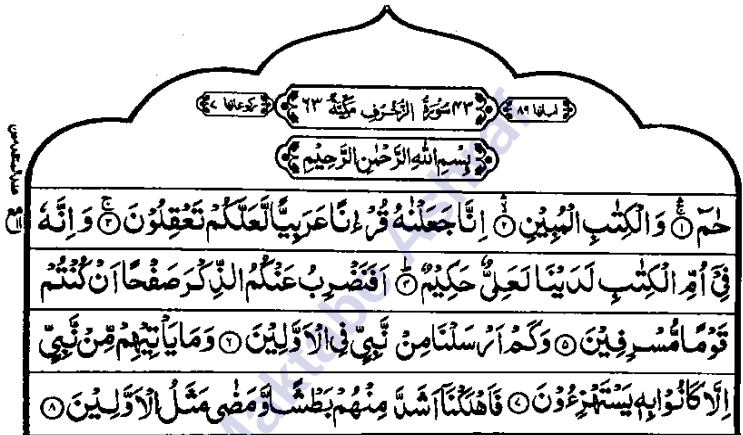 اٰیاتھا ۸۹
۴۳ سُوْرَةُ الزُّخْرُفِ مَكِّیَّةٌ ۶۳
رکوعاتھا ۷
بِسْمِ اللّٰهِ الرَّحْمٰنِ الرَّحِیْمِ
حٰمٓ ۚۛ﴿۱﴾ وَالْكِتٰبِ الْمُبِیْنِ ۙۛ﴿۲﴾ اِنَّا جَعَلْنٰهُ قُرْءٰنًا عَرَبِیًّا لَّعَلَّكُمْ تَعْقِلُوْنَ ۚ﴿۳﴾ وَ اِنَّهٗ
فِیْۤ اُمِّ الْكِتٰبِ لَدَیْنَا لَعَلِیٌّ حَكِیْمٌ ؕ﴿۴﴾ اَفَنَضْرِبُ عَنْكُمُ الذِّكْرَ صَفْحًا اَنْ كُنْتُمْ
قَوْمًا مُّسْرِفِیْنَ ﴿۵﴾ وَكَمْ اَرْسَلْنَا مِنْ نَّبِیٍّ فِی الْاَوَّلِیْنَ ﴿۶﴾ وَمَا یَاْتِیْهِمْ مِّنْ نَّبِیٍّ
اِلَّا كَانُوْا بِهٖ یَسْتَهْزِءُوْنَ ﴿۷﴾ فَاَهْلَكْنَاۤ اَشَدَّ مِنْهُمْ بَطْشًا وَّمَضٰی مَثَلُ الْاَوَّلِیْنَ ﴿۸﴾
Maktaba Ashraf